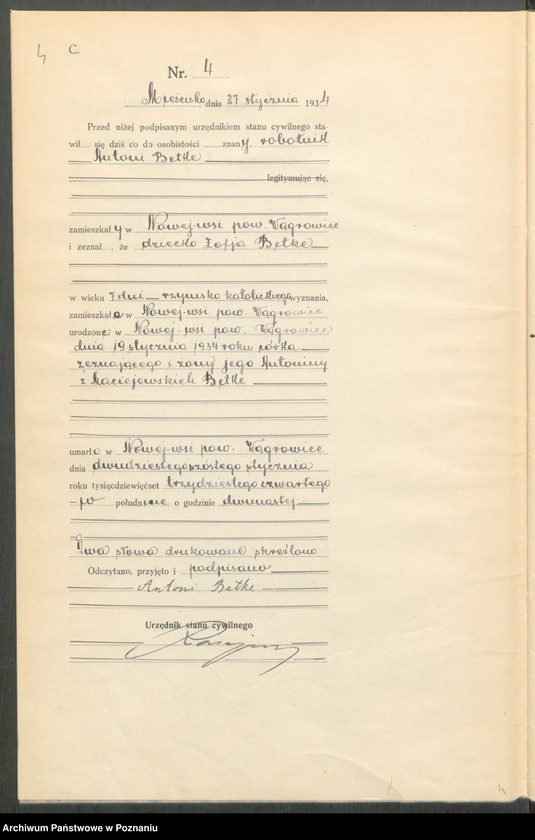 4
C.
Nr. 4
Mieścisko, dnia 27 stycznia 1934
Przed niżej podpisanym urzędnikiem stanu cywilnego sta-
wił się dziś co do osobistości znany, robotnik
Antoni Betke
legitymując się,
zamieszkały w Nowej-wsi pow. Wągrowiec
i zeznał, że dziecko Zofja Betke
w wieku 7 dni rzymsko katolickiego wyznania,
zamieszkała w Nowej-wsi pow. Wągrowiec
urodzone w Nowej-wsi pow. Wągrowiec
dnia 19 stycznia 1934 roku córka
zeznającego i żony jego Antoniny
z Maciejewskich Betke
umarło w Nowej-wsi pow. Wągrowiec
dnia dwudziestegoszóstego stycznia
roku tysiącdziewięćset trzydziestegoczwartego
po południu o godzinie dwunastej
Dwa słowa drukowane skreślono
Odczytano, przyjęto i podpisano
Antoni Betke
Urzędnik stanu cywilnego
Archiwum Państwowe w Poznaniu